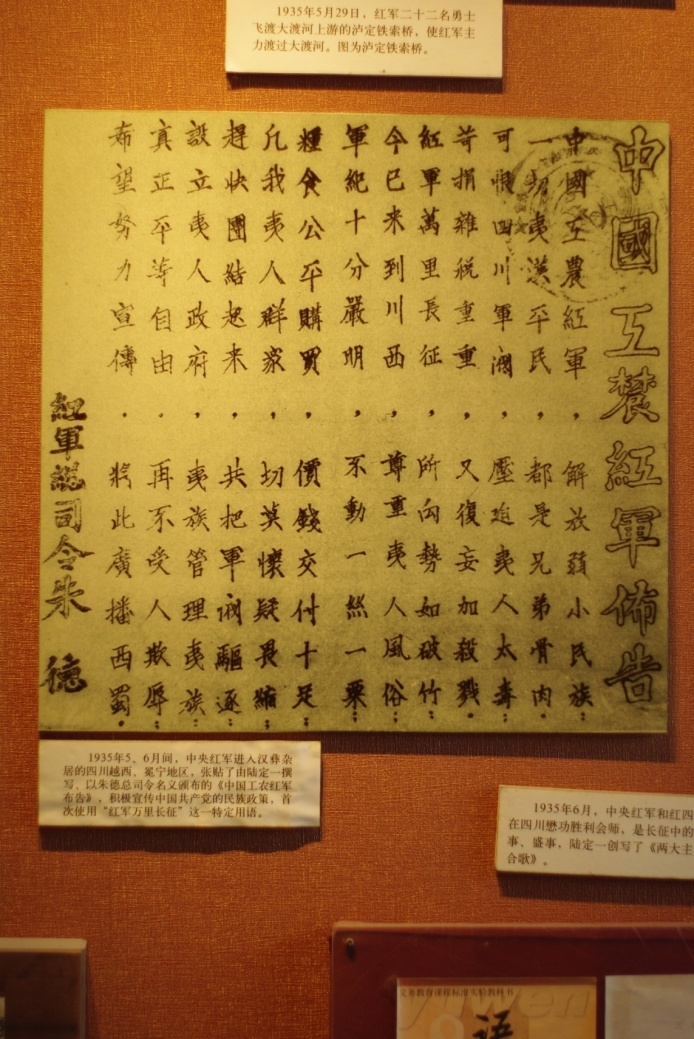 1935年5月29日，红军二十二名勇士
飞渡大渡河上游的泸定铁索桥，使红军主
力渡过大渡河。图为泸定铁索桥。
中國工農紅軍佈告
中國工農紅軍，解放弱小民族：
一切夷漢平民，都是兄弟骨肉。
可恨四川軍閥，壓迫夷人太毒：
苛捐雜税重重，又復妄加殺戮。
紅軍萬里長征，所向勢如破竹：
今已来到川西，尊重夷人風俗：
軍紀十分嚴明，不動一絲一粟：
糧食公平購買，價錢交付十足：
凡我夷人群衆，切莫懷疑畏縮：
趕快團結起来，共把軍閥驅逐：
設立夷人政府，夷族管理夷族：
真正平等自由，再不受人欺辱：
希望努力宣傳，將此廣播西蜀。
紅軍總司令朱德
1935年5、6月间，中央红军进入汉彝杂
居的四川越西、冕宁地区，张贴了由陆定一撰
写、以朱德总司令名义颁布的《中国工农红军
布告》，积极宣传中国共产党的民族政策，首
次使用“红军万里长征”这一特定用语。
1935年6月，中央红军和红四
在四川懋功胜利会师，是长征中的
事、盛事，陆定一创写了《两大主
合歌》。
义务教育课程标准实验教科书
yuwen
语